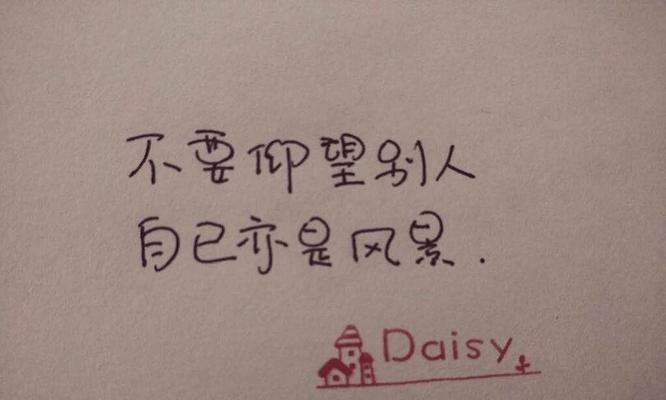 不要仰望别人
自己亦是风景.
Daisy